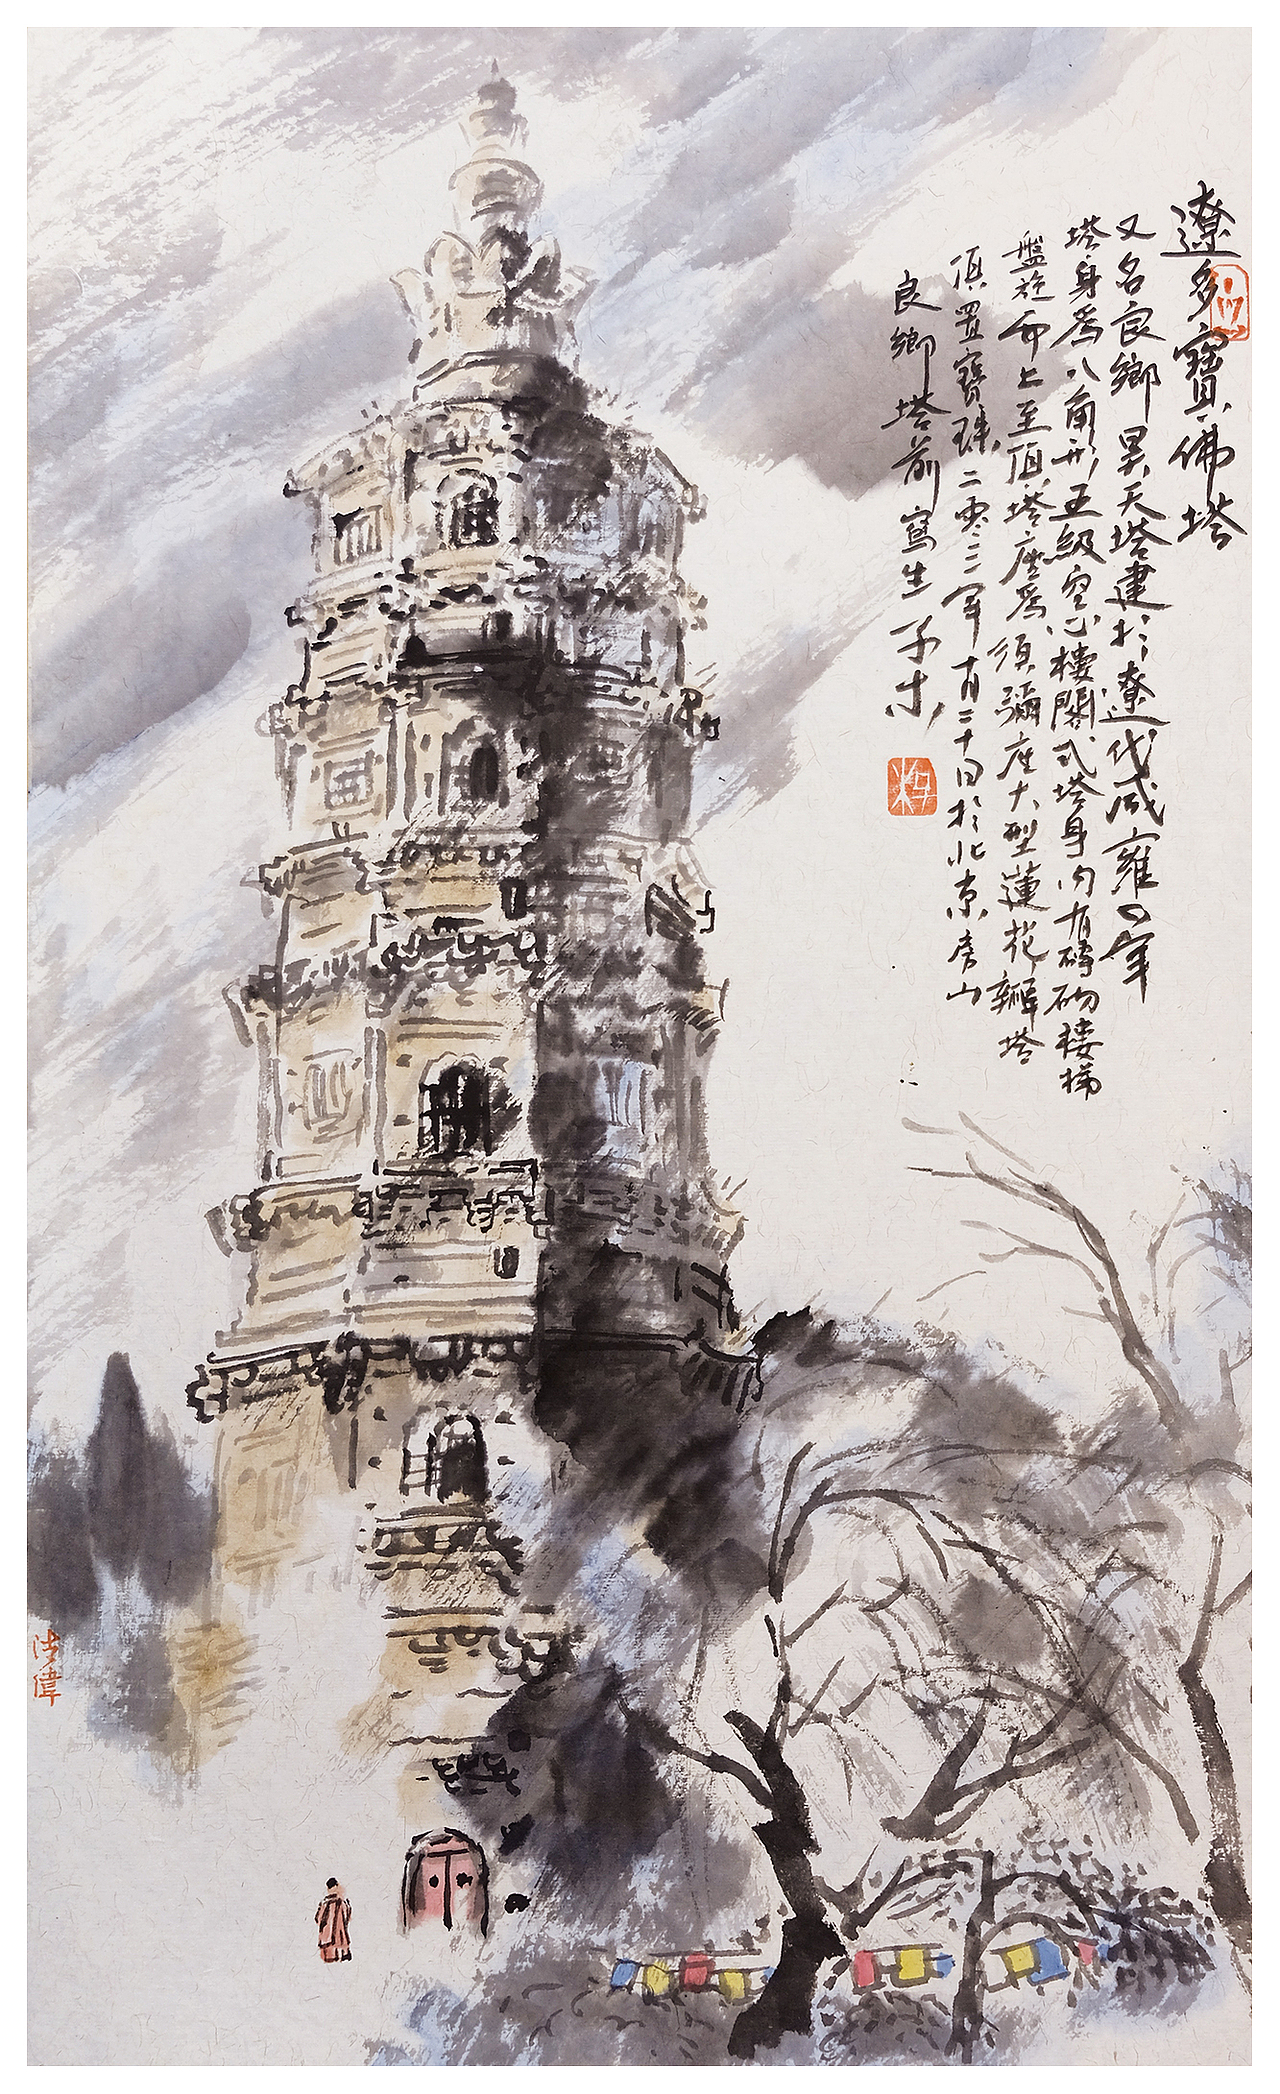 遼多寶佛塔
又名良鄉昊天塔建於遼代咸雍四年
塔身為八角形五級空心樓閣式塔身內有磚砌樓梯
盤旋而上至頂塔座為須彌座大型蓮花瓣塔
頂置寶珠二零二二年十月二十日於北京房山
良鄉塔前寫生